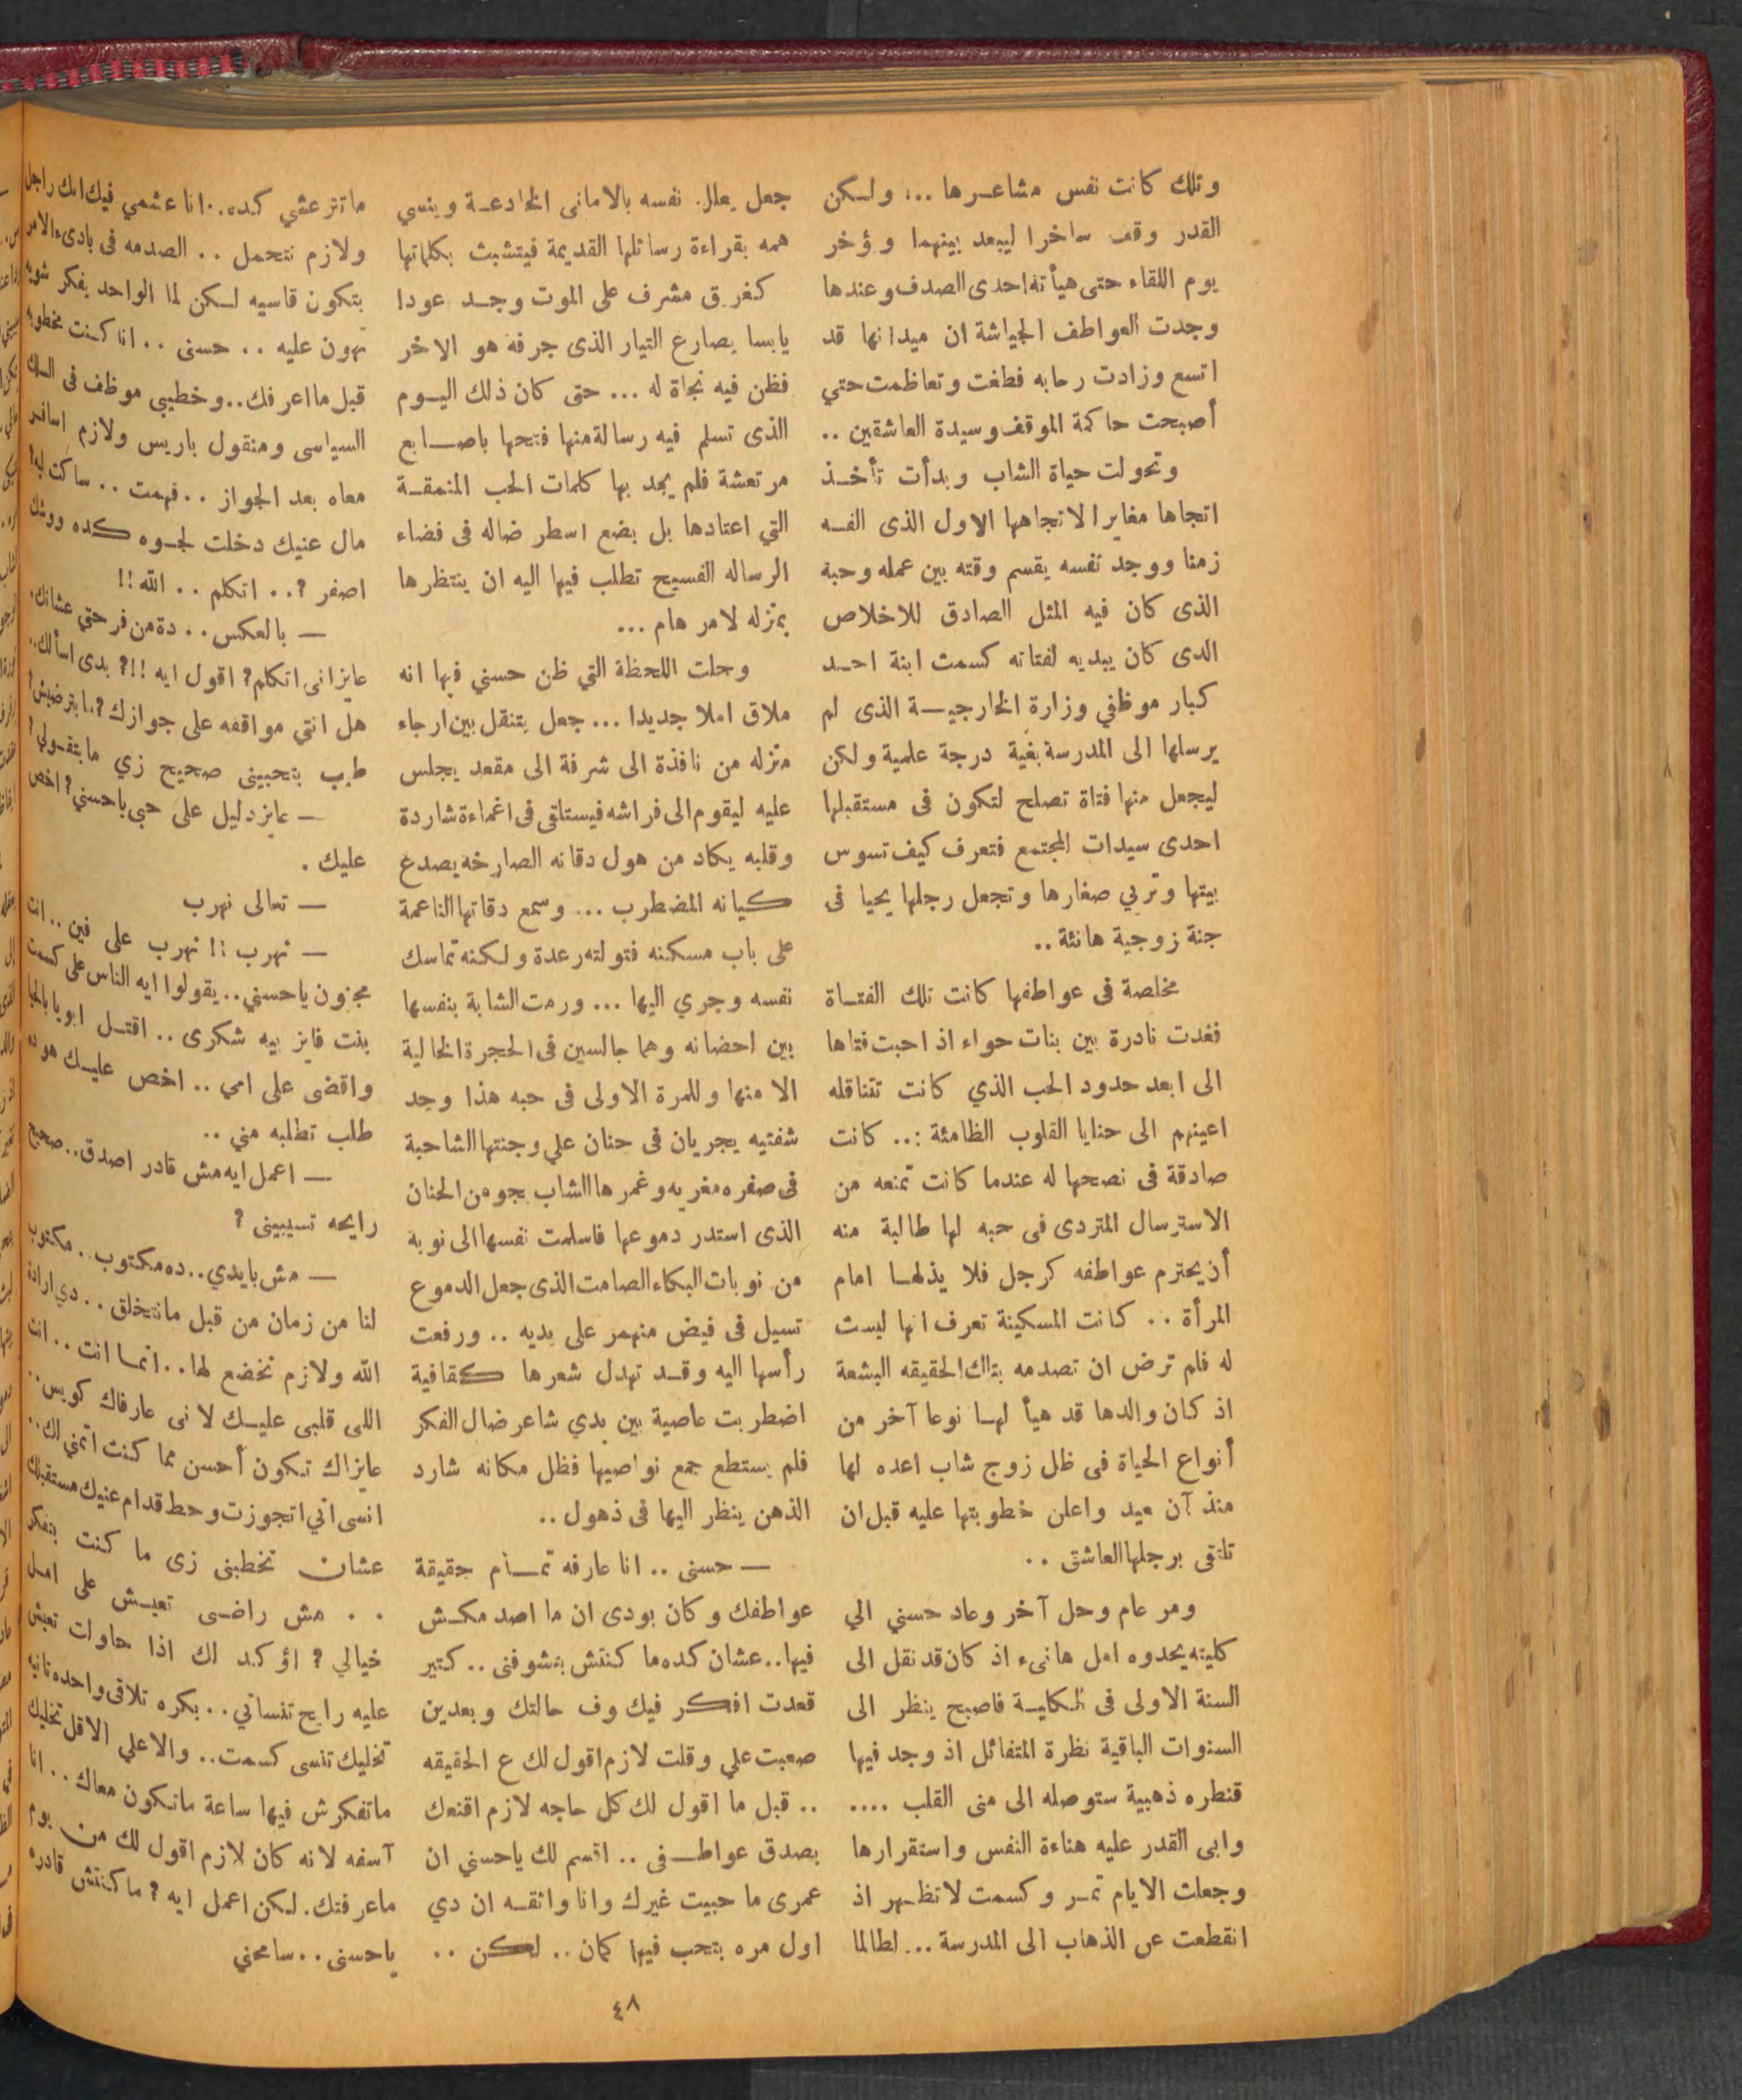 وتلك كانت نفس مشاعرها ... ولكن
القدر وقف ساخرا ليبعد بينهما وؤخر
يوم اللقاء حتى هيأته احدى الصدف وعندها
وجدت العواطف الجياشة ان ميدانها قد
اتسع وزادت رحابه فطغت وتعاظمت حتي
أصبحت حاكمة الموقف وسيدة العاشقين ..
وتحولت حياة الشاب وبدأت تأخذ
اتجاها مغايرا لاتجاهها الاول الذى الفه
زمنا ووجد نفسه يقسم وقته بين عمله وحبه
الذى كان فيه المثل الصادق للاخلاص
الذى كان يبديه لفتاته كسمت ابنة احد
كبار موظفي وزارة الخارجية الذى لم
يرسلها الى المدرسة بغية درجة علمية ولكن
ليجعل منها فتاة تصلح لتكون فى مستقبلها
احدى سيدات المجتمع فتعرف كيف تسوس
بيتها وتربي صغارها وتجعل رجلها يحيا فى
جنة زوجية هانئة ..
مخلصة فى عواطفها كانت تلك الفتاة
فغدت نادرة بين بنات حواء اذ احبت فتاها
الى ابعد حدود الحب الذي كانت تتناقله
اعينهم الى حنايا القلوب الظامئة ... كانت
صادقة فى نصحها له عندما كانت تمنعه من
الاسترسال المتردى فى حبه لها طالبة منه
أن يحترم عواطفه كرجل فلا يذلها امام
المرأة .. كانت المسكينة تعرف انها ليست
له فلم ترض ان تصدمه بتلك الحقيقه البشعة
اذ كان والدها قد هيأ لها نوعا آخر من
أنواع الحياة فى ظل زوج شاب اعده لها
منذ آن معيد واعلن خطوبتها عليه قبل ان
تلتقى برجلها العاشق ..
ومر عام وحل آخر وعاد حسني الي
كليته يحدوه امل هانىء اذ كان قد نقل الى
السنة الاولى فى الكلية فاصبح ينظر الى
السنوات الباقية نظرة المتفائل اذ وجد فيها
قنطره ذهبية ستوصله الى منى القلب ....
وابى القدر عليه هناءة النفس واستقرارها
وجعلت الايام تمر وكسمت لا تظهر اذ
انقطعت عن الذهاب الى المدرسة ... لطالما
جعل يعلل نفسه بالامانى الخادعة وينسي
همه بقراءة رسائلها القديمة فيتشبث بكلماتها
كغريق مشرف على الموت وجد عودا
يابسا يصارع التيار الذى جرفه هو الاخر
فظن فيه نجاة له ... حتى كان ذلك اليوم
الذى تسلم فيه رسالة منها فتحها باصابع
مرتعشة فلم يجد بها كلمات الحب المنمقة
التي اعتادها بل بضع اسطر ضاله فى فضاء
الرساله الفسيح تطلب فيها اليه ان ينتظرها
بمنزله لامر هام ...
وحلت اللحظة التي ظن حسني فيها انه
ملاق املا جديدا ... جعل يتنقل بين ارجاء
منزله من نافذة الى شرفة الى مقعد يجلس
عليه ليقوم الى فراشه فيستلقى فى اغماءة شاردة
وقلبه يكاد من هول دقاته الصارخة يصدع
كيانه المضطرب ... وسمع دقاتها الناعمة
على باب مسكنه فتولته رعدة ولكنه تماسك
نفسه وجري اليها ... ورمت الشابة بنفسها
بين احضانه وهما جالسين فى الحجرة الخالية
الا منها وللمرة الاولى فى حبه هذا وجد
شفتيه يجريان فى حنان علي وجنتها الشاحبة
فى صفره مغريه وغمرها الشاب بجو من الحنان
الذى استدر دموعها فاسلمت نفسها الى نوبه
من نوبات البكاء الصامت الذى جعل الدموع
تسيل فى فيض منهمر على يديه .. ورفعت
رأسها اليه وقد تهدل شعرها كقافية
اضطربت عاصية بين يدي شاعر ضال الفكر
فلم يستطع جمع نواصيها فظل مكانه شارد
الذهن ينظر اليها فى ذهول ..
— حسنى .. انا عارفه تمام حقيقة
عواطفك وكان بودى ان ما اصدمكش
فيها .. عشان كده ما كنتش بتشوفنى .. كتير
قعدت افكر فيك وف حالتك وبعدين
صعبت علي وقلت لازم اقول لك ع الحقيقه
.. قبل ما اقول لك كل حاجه لازم اقنعك
بصدق عواطفى .. اقسم لك ياحسني ان
عمرى ما حبيت غيرك وانا واثقه ان دي
اول مره بتحب فيها كمان .. لكن ..
ماتزعقي كده .. انا عشمي فيك انك راجل
ولازم تتحمل .. الصدمه فى بادىء الامر
بتكون قاسيه لكن لما الواحد يفكر شويه
تهون عليه .. حسنى .. انا كنت مخطوبه
قبل ما اعرفك .. وخطيبى موظف فى السلك
السياسى ومنقول باريس ولازم اسافر
معاه بعد الجواز .. فهمت .. ساكت ليه ؟
مال عنيك دخلت لجوه كده ووشك
اصفر ؟ .. اتكلم .. الله !!
— بالعكس .. دة من فرحتي عشانك
عايزانى اتكلم ؟ اقول ايه !!؟ بدى اسألك ..
هل انتي موافقه على جوازك ؟ .. ما بترضيش ؟
طيب بتحبينى صحيح زي ما بتقولي ؟
— عايز دليل على حبى ياحسني ؟ اخص
عليك .
— تعالى نهرب
— نهرب !! نهرب على فين .. انت
مجنون ياحسني .. يقولوا ايه الناس على كسمت
بنت فايز بيه شكرى .. اقتل ابويا بالحيا
واقضى على امي .. اخص عليك هو ده
طلب تطلبه مني ..
— اعمل ايه مش قادر اصدق .. صحيح
رايحه تسيبينى ؟
— مش بايدي .. ده مكتوب .. مكتوب
لنا من زمان من قبل مانتخلق .. دي ارادة
الله ولازم نخضع لها .. انما انت .. انت
اللى قلبى عليك لانى عارفاك كويس ..
عايزاك تكون أحسن مما كنت اتمني لك ..
انسى اني اتجوزت وحط قدام عنيك مستقبلك
عشان تخطبنى زى ما كنت بتفكر
.. مش راضى تعيش على امل
خيالي ؟ اؤكد لك اذا حاولت تعيش
عليه رايح تنساني .. بكره تلاقى واحده تانيه
تخليك تنسى كسمت .. والا علي الاقل تخليك
ماتفكرش فيها ساعة ماتكون معاك .. انا
آسفه لانه كان لازم اقول لك من يوم
ماعرفتك . لكن اعمل ايه ؟ ما كنتش قادره
ياحسنى .. سامحني
٤٨